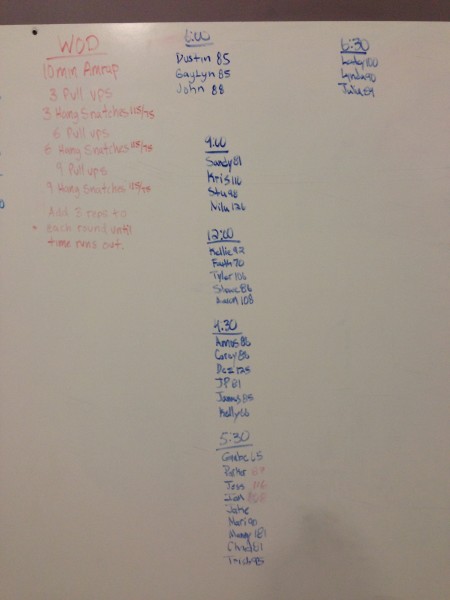 WOD
10 min Amrap
3 Pull ups
3 Hang Snatches 115/75
6 Pull ups
6 Hang Snatches 115/75
9 Pull ups
9 Hang Snatches 115/75
Add 3 reps to
* Each round until
time runs out.
6:00
Dustin 85
Gaylyn 85
John 88
9:00
Sandy 81
Kris 116
Stu 98
Nilu 126
12:00
Kellie 92
Faith 70
Tyler 106
86
108
4:30
Amos 86
Corey 86
Dez 125
JP 81
James 85
Kelly 66
5:30
Gabe 65
Parker
Jess 116
Jake
Mari 90
Manny 181
Chad 81
Trish 95
6:30
100
Lynda 90
Julie 89